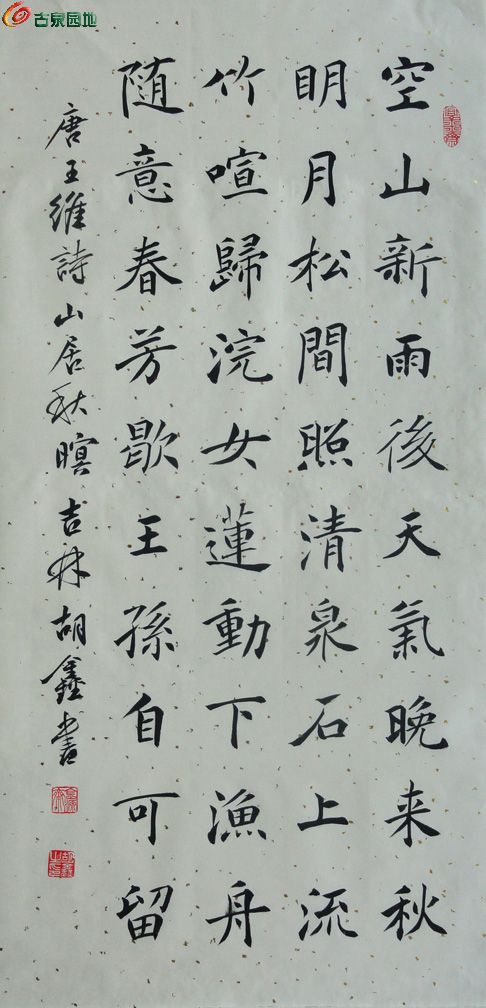 古泉园地
空山新雨後天氣晚来秋
明月松間照清泉石上流
竹喧歸浣女蓮動下漁舟
随意春芳歇王孫自可留
唐王維詩山居秋暝吉林胡鑫書